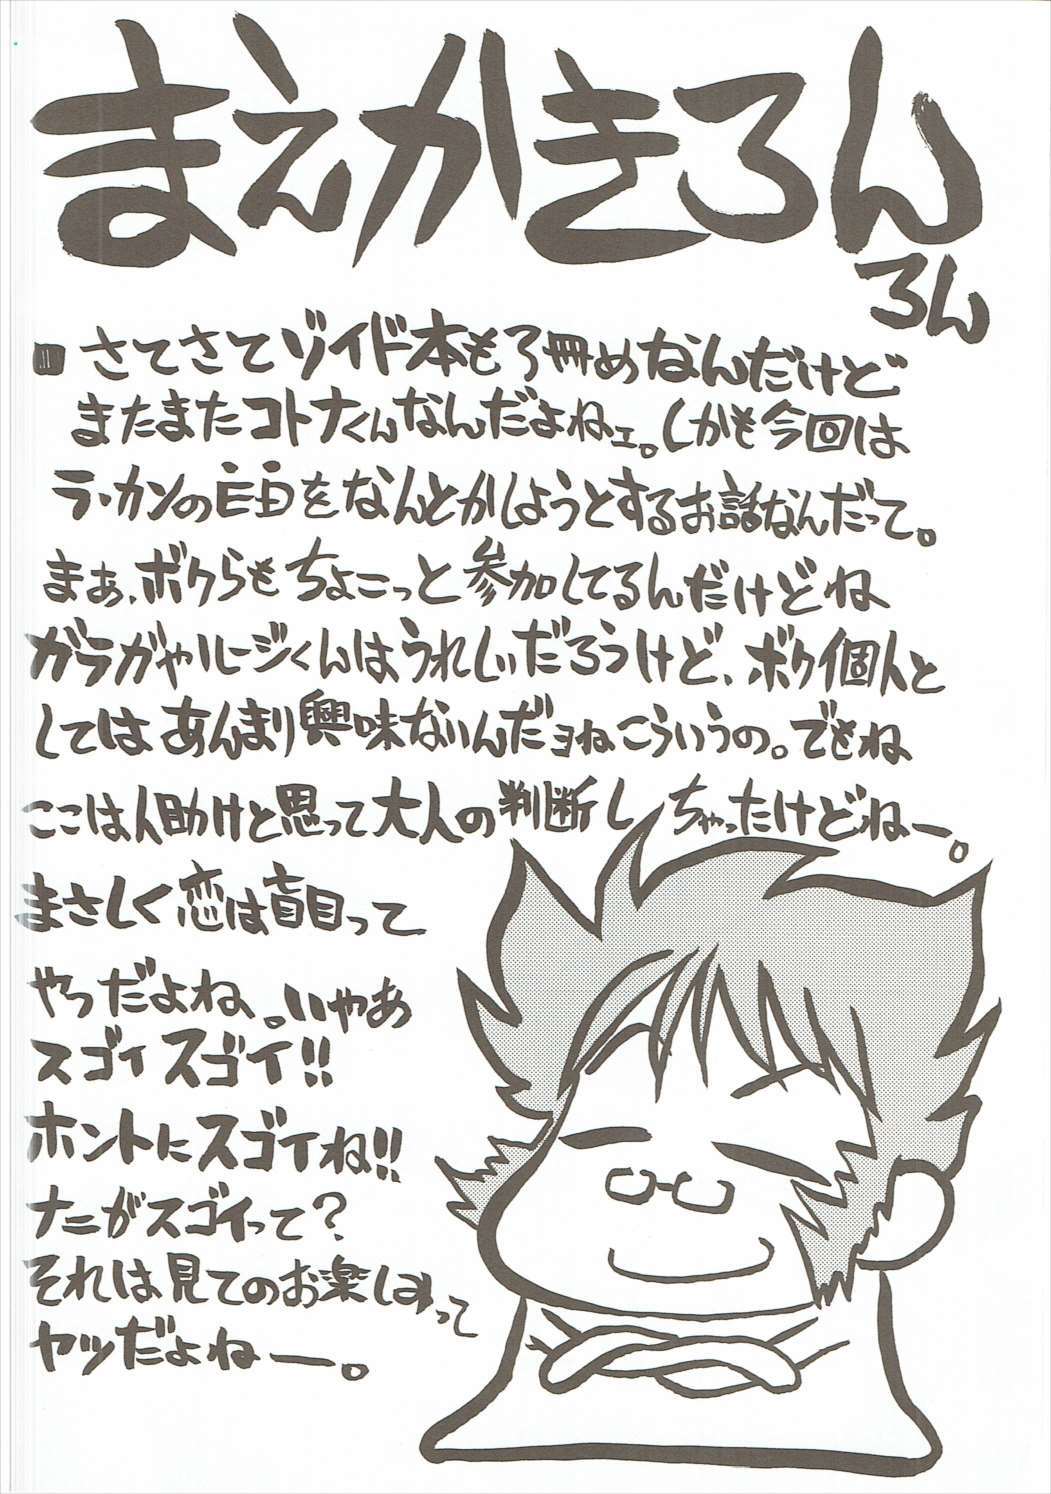 まえがきろん
ろん
さてさてゾイド本も3冊めなんだけど
またまたコトナくんなんだよねェ。しかも今回は
ラ・カンの
をなんとかしようとするお話なんだって。
まぁ、ボクらもちょこっと参加してるんだけどね
ガラガやルージくんはうれしいだろうけど、ボク個人と
してはあんまり興味ないんだヨねこういうの。でもね
ここは人助けと思って大人の判断しちゃったけどねー。
まさしく恋は盲目って
やつだよね。いやあ
スゴイスゴイ!!
ホントにスゴイね!!
ナニがスゴイって?
それは見てのお楽しみって
ヤツだよねー。